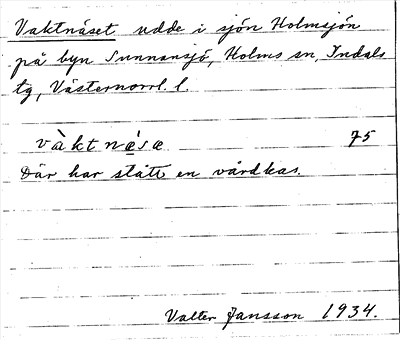 Vaktnäset udde i sjön Holmsjön
på byn Sunnansjö, Holms sn, Indals
tg, Västernorrl. l.
vàktnæ̀sæ 75
Där har stått en vårdkas.
Valter Jansson 1934.